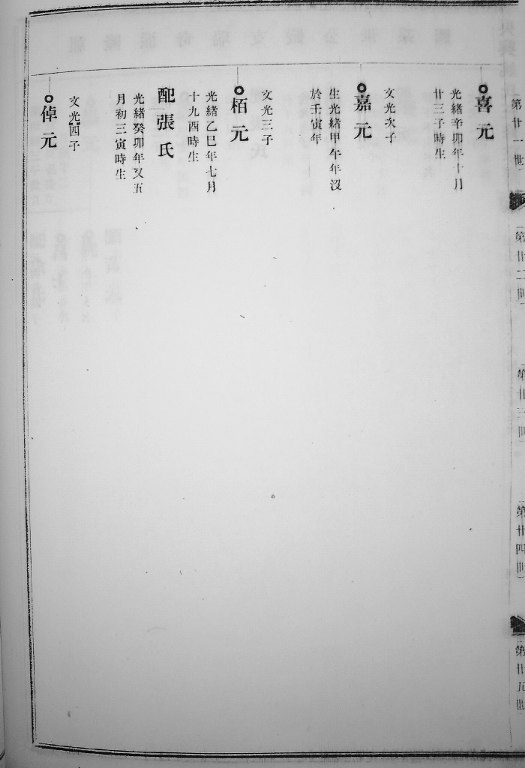 第廿一世
第廿二世
第廿三世
第廿四世
第廿五世
喜元
光緒辛卯年十月
廿三子時生
嘉元
文光次子
生光緒甲午年沒
於壬寅年
栢元
文光三子
光緒乙巳年七月
十九酉時生
配張氏
光緒癸卯年又五
月初三寅時生
倬元
文光四子